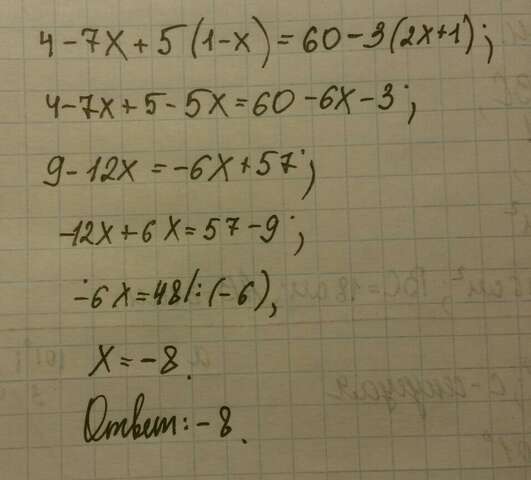 4-7x+5(1-x)=60-3(2x+1);
4-7x+5-5x=60-6x-3;
9-12x=-6x+57;
-12x+6x=57-9;
-6x=48/:(-6),
x=-8.
Ответ:-8.